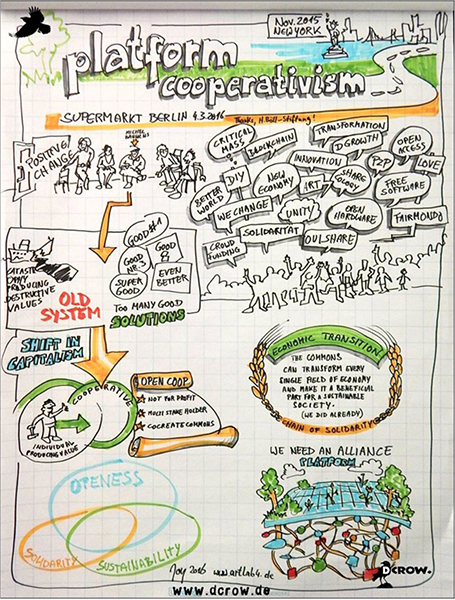 NOV. 2015
NEW YORK
platform
cooperativism
SUPERMARKT BERLIN 4.3.2016
Thanks, H.Böll-Stiftung!
POSITIVE
CHANGE
MICHEL
BAUWENS
CRITICAL
MASS
BLOCKCHAIN
TRANSFORMATION
DGROWTH
OPEN
ACCESS
INNOVATION
P2P
LOVE
DIY
NEW
ECONOMY
ART
SHARE
COLOGY
FREE
SOFTWARE
BETTER
WORLD
WE CHANGE
UNITY
OPEN
HARDWARE
FAIRMONDO
CROWD
FUNDING
SOLIDARITÄT
OUISHARE
CATASTR
OPHY
PRODUCING
DESTRUCTIVE
VALUES
OLD
SYSTEM
GOOD #1
GOOD
NR.
GOOD
8
SUPER
GOOD
EVEN
BETTER
TOO MANY GOOD
SOLUTIONS
SHIFT IN
CAPITALISM
COOPERATIVE
INDIVIDUAL
PRODUCING VALUE
OPEN COOP
NOT FOR PROFIT
MULTI STAKE HOLDER
COCREATE COMMONS
ECONOMIC TRANSITION
THE COMMONS
CAN TRANSFORM EVERY
SINGLE FIELD OF ECONOMY
AND MAKE IT A BENEFICIAL
PART FOR A SUSTAINABLE
SOCIETY.
(WE DID ALREADY)
CHAIN OF SOLIDARITY
WE NEED AN ALLIANCE
PLATFORM
OPENESS
SOLIDARITY
SUSTAINABILITY
Joy 2016 www.artlab4.de
DCROW.
www.dcrow.de